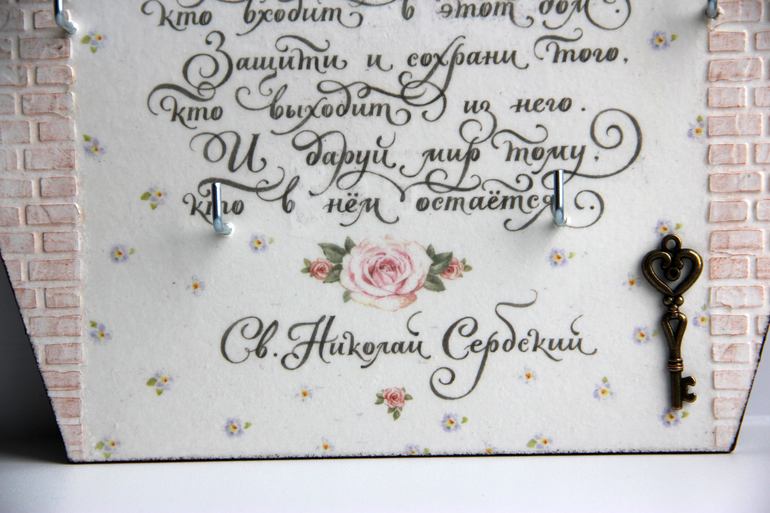 кто входит в этот дом.
Защити и сохрани того,
кто выходит из него.
И даруй мир тому,
кто в нём остаётся.
Св. Николай Сербский